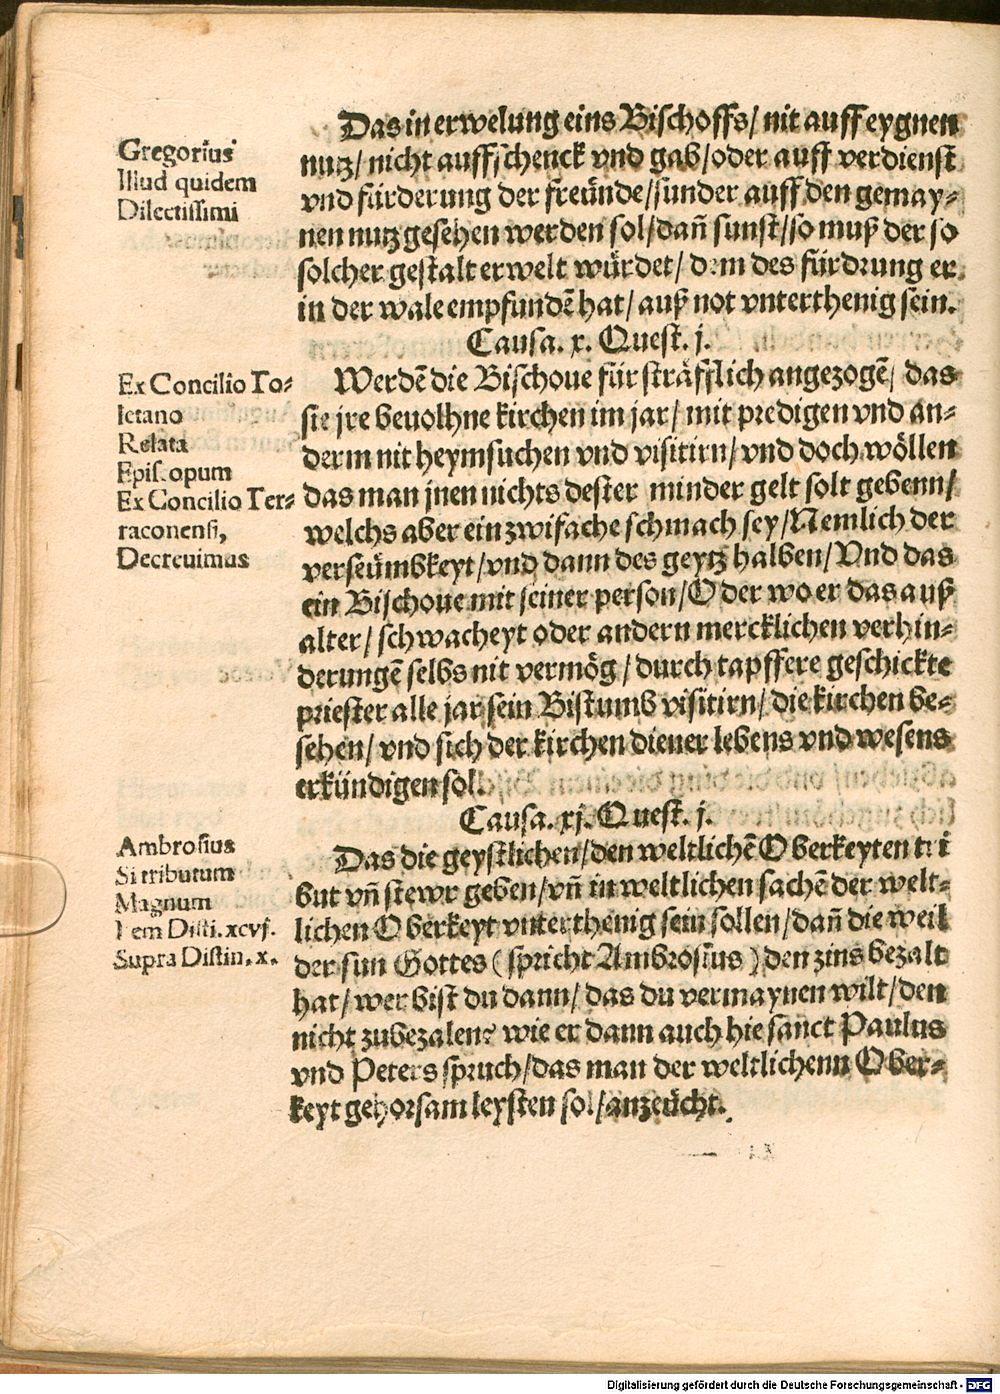 Das in erwelung eins Bischoffs/ nit auff eygnen
Gregorius
nutz/ nicht auff schenck vnd gab/oder auff verdienst
Illud quidem
vnd fürderung der freünde/sunder auff den gemay-
Dilectissimi
nen nutz gesehen werden sol/dañ sunst/so muß der so
solcher gestalt erwelt würdet/ dem des fürdrung er
in der wale empfundẽ hat/ auß not vnterthenig sein.
Causa. x. Quest. j.
Werdẽ die Bischoue für sträfflich angezogẽ/ das
Ex Concilio To-
sie jre beuolhne kirchen im jar/ mit predigen vnd an-
letano
Relata
derm nit heymsuchen vnd visitirn/vnd doch wöllen
Episcopum
Ex Concilio Ter-
das man jnen nichts dester minder gelt solt gebenn/
raconensi,
welchs aber ein zwifache schmach sey/Nemlich der
Decreuimus
verseümbkeyt/vnd dann des geytz halben/Vnd das
ein Bischoue mit seiner person/Oder wo er das auß
alter/ schwacheyt oder andern mercklichen verhin-
derungẽ selbs nit vermög/durch tapffere geschickte
priester alle jar sein Bistumb visitirn/die kirchen be-
sehen/ vnd sich der kirchen diener lebens vnd wesens
erkündigen soll.
Causa. xj. Quest. j.
Ambrosius
Das die geystlichen/den weltlichẽ Oberkeyten tri
Si tributum
but vñ stewr geben/vñ in weltlichen sachẽ der welt-
Magnum
lichen Oberkeyt vnterthenig sein sollen/dañ die weil
Item Disti. xcvj.
Supra Distin. x.
der sun Gottes (spricht Ambrosius) den zins bezalt
hat/ wer bist du dann/ das du vermaynen wilt/den
nicht zubezalen? wie er dann auch hie sanct Paulus
vnd Peters spruch/das man der weltlichenn Ober-
keyt gehorsam leysten sol/anzeücht.
Digitalisierung gefördert durch die Deutsche Forschungsgemeinschaft - DFG